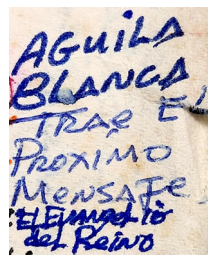 AGUiLA
BLANCA
TRAE El
PROXiMO
MENSAJE,
El Evangelio
del Reino